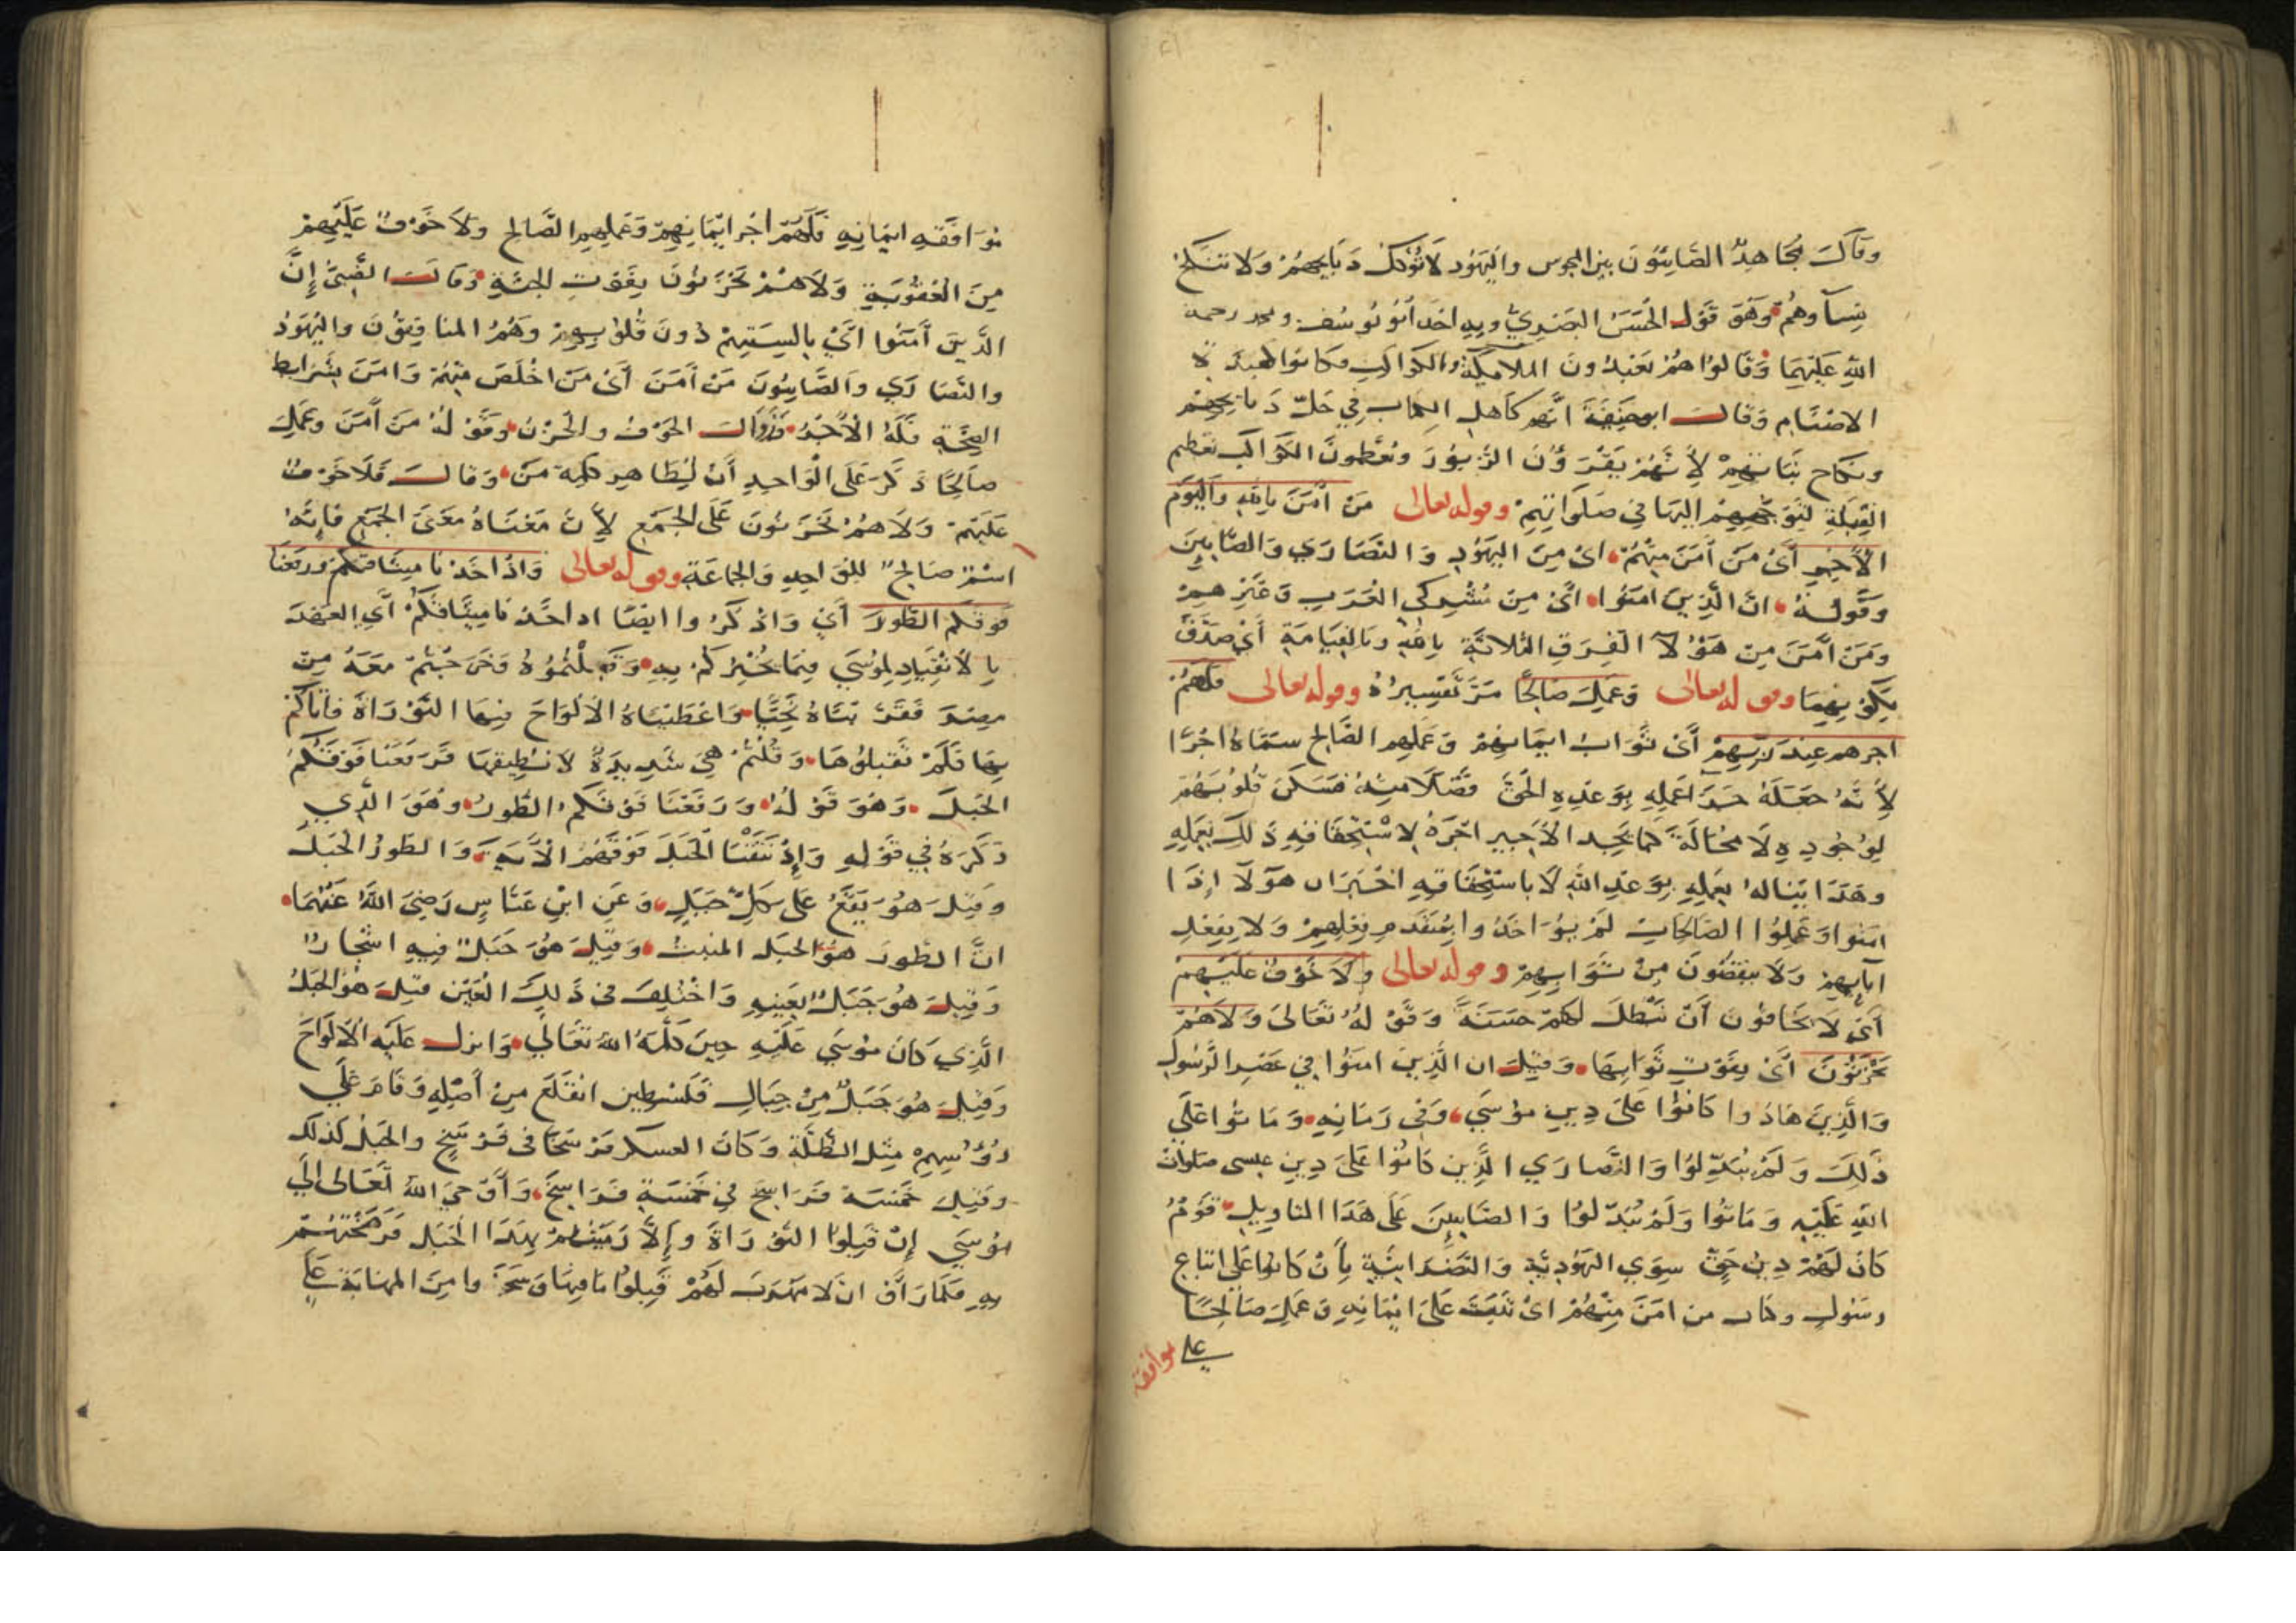 وقال مجاهد الصابئون بين المجوس واليهود لا تؤكل ذبايحهم ولا تنكح
نساوهم وهو قول الحسن البصري وبه اخذ ابو يوسف ومحمد رحمة
الله عليهما وقالوا هم يعبدون الملائكة والكواكب فكانوا كعبدة
الاصنام وقال ابو حنيفة انهم كاهل الكتاب في حل ذبايحهم
ونكاح بناتهم لأنهم يقرؤن الزبور ويعظمون الكواكب تعظيم
القبلة لتوجههم اليها في صلواتهم وقوله تعالى من آمن بالله واليوم
الآخر أي من آمن منهم اي من اليهود والنصارى والصابين
وقوله ان الذين امنوا اي من مشركي العرب وغيرهم
ومن آمن من هؤلآ الفرق الثلاثة بالله وبالقيامة أي صدق
بكونهما وقوله تعالى وعمل صالحا مر تفسيره وقوله تعالى فلهم
اجرهم عند ربهم أي ثواب ايمانهم وعملهم الصالح سماه اجرا
لأنه جعله جزآ عمله بوعده الحق فضلا منه فسكن قلوبهم
لوجوده لا محالة كما يجد الأجير اجره لاستحقاقه ذلك بعمله
وهذا يناله بعمله بوعد الله لا باستحقاقه اخبر ان هولآ إذا
امنوا وعملوا الصالحات لم يؤاخذوا بمتقدم فعلهم ولا بفعل
ابآيهم ولا ينقصون من ثوابهم وقوله تعالى ولا خوف عليهم
أي لا يخافون أن تبطل لهم حسنة وقوله تعالى ولا هم
يحزنون أي بفوت ثوابها وقيل ان الذين امنوا في عصر الرسول
والذين هادوا كانوا على دين موسى وفي زمانه وماتوا على
ذلك ولم يبدلوا والنصاري الذين كانوا على دين عيسى صلوات
الله عليه وماتوا ولم يبدلوا والصابين على هذا التاويل قوم
كان لهم دين حق سوي اليهودية والنصرانية بأن كانوا على اتباع
رسول وكان من امن منهم اي ثبت على ايمانه وعمل صالحا
على موافقة
موافقة ايمانه فلهم اجر ايمانهم وعملهم الصالح ولا خوف عليهم
من العقوبة ولا هم يحزنون بفوت الجنة وقالت إن
الذين آمنوا اي بالسنتهم دون قلوبهم وهم المنافقون واليهود
والنصاري والصابيون من آمن أي من اخلص منهم وامن بشرايط
الصحة فله الأجر وزوال الخوف والحزن وقوله من آمن وعمل
صالحا ذكر على الواحد أن لظاهر كلمة من وقال فلا خوف
عليهم ولا هم يحزنون على الجمع لأن معناه معنى الجمع فانه
اسم صالح للواحد والجماعة وقوله تعالى واذ اخذنا ميثاقكم ورفعنا
فوقكم الطور أي واذكروا ايضا اذ اخذنا ميثاقكم أي العهد
بالانقياد لموسى فيما يخبركم به وقبلتموه وخرجتم معه من
مصر فقد وأعطيناه الألواح فيها التوراة فاتاكم
بها فلم تقبلوها وقلتم هي شديدة لا نطيقها فرفعنا فوقكم
الجبل وهو قوله ورفعنا فوقكم الطور وهو الذي
ذكره في قوله وإذ نتقنا الجبل فوقهم الآية والطور الجبل
وقيل هو يقع على كل جبل وعن ابن عباس رضي الله عنهما
ان الطور هو الجبل المنبت وقيل هو جبل فيه اشجار
وقيل هو جبل بعينه واختلف في ذلك العين قيل هو الجبل
الذي كان موسى عليه حين كلمه الله تعالي وانزل عليه الألواح
وقيل هو جبل من جبال فلسطين انقلع من أصله وقام على
رؤسهم مثل الظلة وكان العسكر فرسخا في فرسخ والجبل كذلك
وقيل خمسة فراسخ في خمسة فراسخ وأوحي الله تعالى الي
موسى إن قبلوا التوراة وإلا رميتهم بهذا الجبل فرضختهم
به فلما رأوا ان لا مهرب لهم قبلوا ما فيها وسجدوا من المهابة على